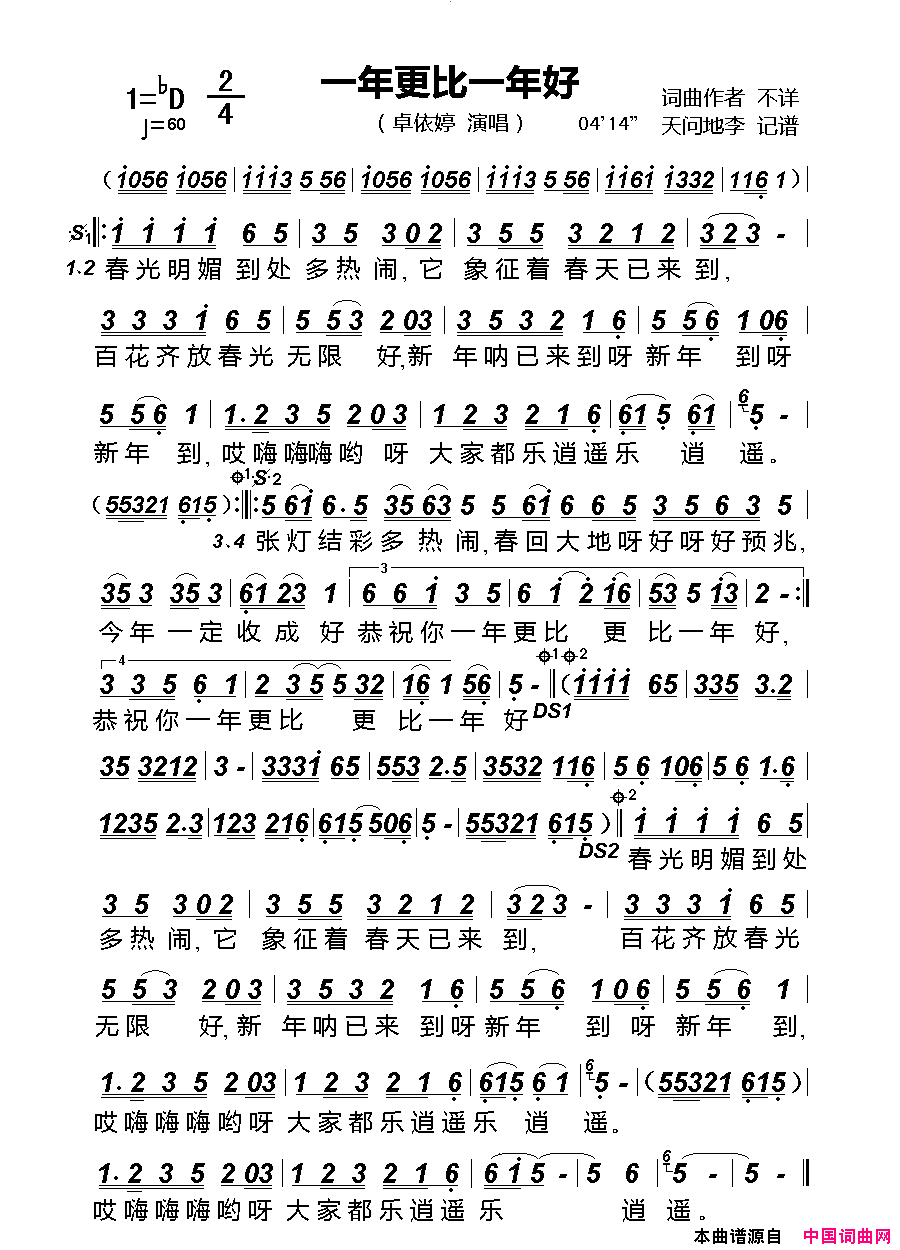 一年更比一年好
1=♭D 2/4 词曲作者 不详
♩=60 （卓依婷 演唱） 04'14" 天问地李 记谱
（i056 i056|iii3 5 56|i056 i056|iii3 5 56|ii6i i332|116 1）
𝄋1‖: i i i i 6 5|3 5 3 0 2|3 5 5 3 2 1 2|3 2 3 -|
1､2 春光明媚 到处 多热 闹,它 象征着 春天已来 到,
3 3 3 i 6 5|5 5 3 2 03|3 5 3 2 1 6|5 5 6 1 06|
百花齐放春光 无限 好,新 年呐已来到呀 新年 到呀
5 5 6 1|1. 2 3 5 2 0 3|1 2 3 2 1 6|6 1 5 6 1|6 5 -|
新年 到,哎嗨嗨嗨哟 呀 大家都乐逍遥乐 逍 遥。
𝄌1 𝄋2
（55321 615）:‖: 5 6i 6. 5 35 63|5 5 6i 6 6 5 3 5 6 3 5|
3､4 张灯结彩多 热 闹,春回大地呀好呀好预兆,
3
35 3 35 3|61 23 1|6 6 i 3 5|6 i 2 i6|53 5 i3|2 - :‖
今年 一定 收 成 好 恭祝你一年更比 更 比一年 好,
4 𝄌1𝄌2
3 3 5 6 1|2 3 5 5 32|16 1 56|5 -‖（iiii 65|335 3.2|
恭祝你一年更比 更 比一年 好 DS1
35 3212|3 -|333i 65|553 2.5|3532 116|5 6 106|5 6 1.6|
𝄌2
1235 2.3|123 216|615 506|5 -|55321 615）‖ i i i i 6 5|
DS2 春光明媚到处
3 5 3 0 2|3 5 5 3 2 1 2|3 2 3 -|3 3 3 i 6 5|
多热 闹,它 象征着 春天已来 到, 百花齐放春光
5 5 3 2 0 3|3 5 3 2 1 6|5 5 6 1 0 6|5 5 6 1|
无限 好,新 年呐已来 到呀新年 到 呀 新年 到,
1. 2 3 5 2 03|1 2 3 2 1 6|6 1 5 6 1|6 5 -|（55321 615）|
哎嗨嗨嗨哟呀 大家都乐逍遥乐 逍 遥。
1. 2 3 5 2 03|1 2 3 2 1 6|6 i 5 -|5 6|6 5 -|5 -‖
哎嗨嗨嗨哟呀 大家都乐逍遥 乐 逍 遥。
本曲谱源自 中国词曲网